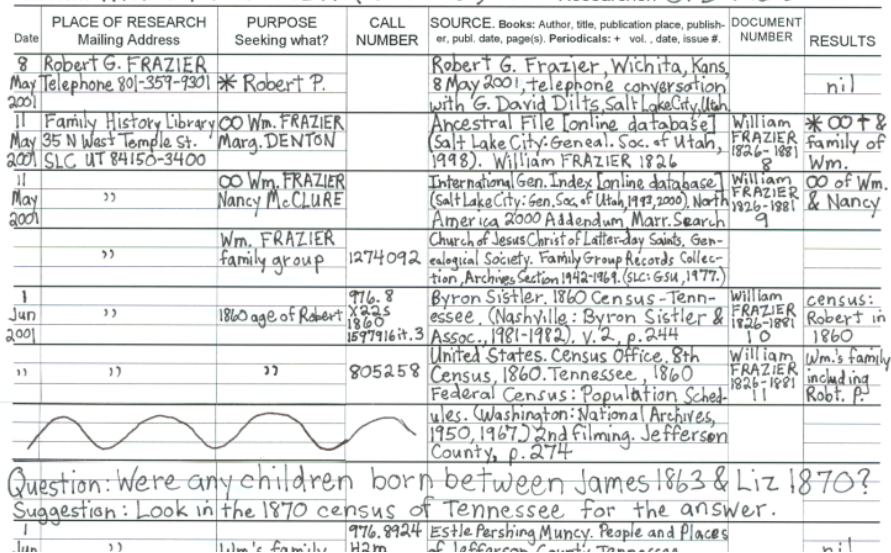 Date
PLACE OF RESEARCH
Mailing Address
PURPOSE
Seeking what?
CALL
NUMBER
SOURCE. Books: Author, title, publication place, publish-
er, publ. date, page(s). Periodicals: + vol. , date, issue #.
DOCUMENT
NUMBER
RESULTS
8
May
2001
Robert G. FRAZIER
Telephone 801-359-9301
* Robert P.
Robert G. Frazier, Wichita, Kans,
8 May 2001, telephone conversation
with G. David Dilts, Salt Lake City, Utah
nil
11
May
2001
Family History Library
35 N West Temple St.
SLC UT 84150-3400
OO Wm. FRAZIER
Marg. DENTON
Ancestral File [online database]
(Salt Lake City: Geneal. Soc. of Utah,
1998). William FRAZIER 1826
William
FRAZIER
1826-1881
8
* OO † &
family of
Wm.
11
May
2001
"
OO Wm. FRAZIER
Nancy McCLURE
International Gen. Index [online database]
(Salt Lake City: Gen. Soc. of Utah, 1993, 2000). North
America 2000 Addendum, Marr. Search
William
FRAZIER
1826-1881
9
OO of Wm.
& Nancy
"
Wm. FRAZIER
family group
1274092
Church of Jesus Christ of Latter-day Saints. Gen-
ealogical Society. Family Group Records Collec-
tion, Archives Section 1942-1969. (SLC: GSU, 1977.)
1
Jun
2001
"
1860 age of Robert
976.8
X22S
1860
1597916 it. 3
Byron Sistler. 1860 Census - Tenn-
essee. (Nashville: Byron Sistler &
Assoc., 1981-1982). v. 2, p. 244
William
FRAZIER
1826-1881
10
census:
Robert in
1860
"
"
"
805258
United States. Census Office. 8th
Census, 1860. Tennessee, 1860
Federal Census: Population Sched-
ules. (Washington: National Archives,
1950, 1967.) 2nd filming. Jefferson
County, p. 274
William
FRAZIER
1826-1881
11
Wm.'s family
including
Robt. P.
Question: Were any children born between James 1863 & Liz 1870?
Suggestion: Look in the 1870 census of Tennessee for the answer.
1
Jun
"
Wm's family
976.8924
H2m
Estle Pershing Muncy. People and Places
of Jefferson County Tennessee
nil